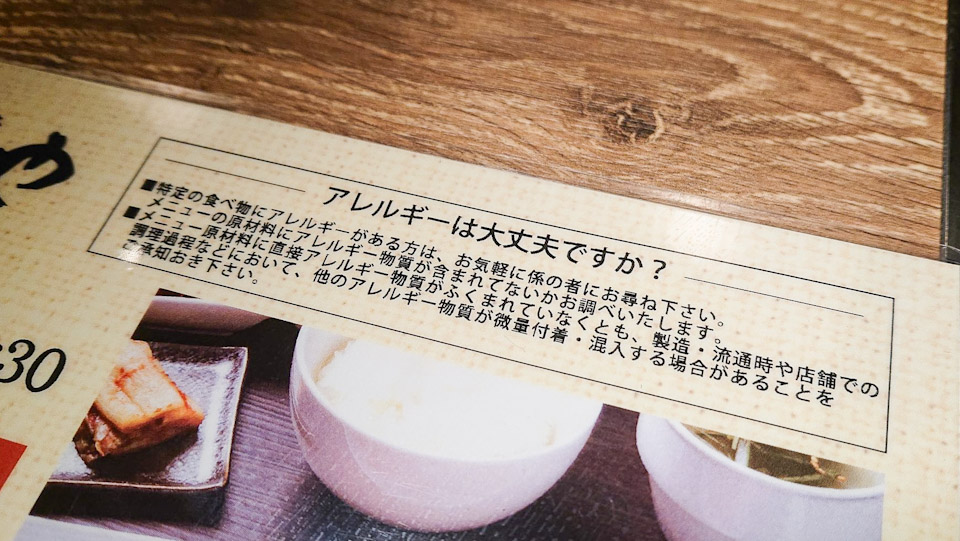 や
アレルギーは大丈夫ですか？
■特定の食べ物にアレルギーがある方は、お気軽に係の者にお尋ね下さい。
メニューの原材料にアレルギー物質が含まれてないかお調べいたします。
■メニュー原材料に直接アレルギー物質がふくまれていなくとも、製造・流通時や店舗での
調理過程などにおいて、他のアレルギー物質が微量付着・混入する場合があることを
ご承知おき下さい。
:30